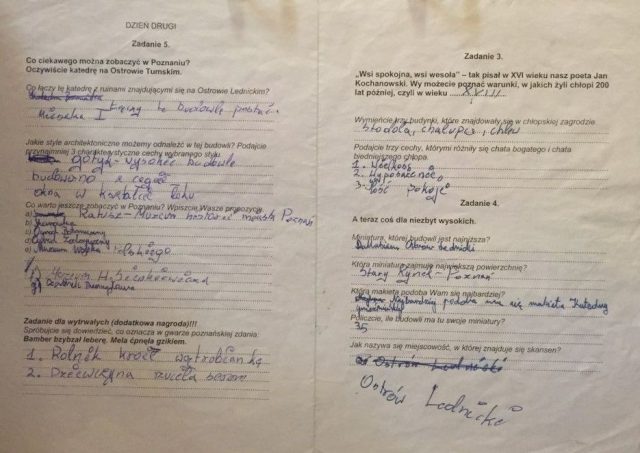 DZIEŃ DRUGI
Zadanie 5.
Co ciekawego można zobaczyć w Poznaniu?
Oczywiście katedrę na Ostrowie Tumskim.
Co łączy tę katedrę z ruinami znajdującymi się na Ostrowie Lednickim?
Łączy te budowle postać
Mieszka I
Jakie style architektoniczne możemy odnaleźć w tej budowli? Podajcie
przynajmniej 3 charakterystyczne cechy wybranego stylu.
gotyk - wysokie budowle
budowano z cegieł
okna w kształcie łuku
Co warto jeszcze zobaczyć w Poznaniu? Wpiszcie Wasze propozycje.
a) Ratusz - Muzeum historii miasta Poznań
b)
c)
d) Zoologiczny
e) Muzeum Wojska
f) Muzeum H. Sienkiewicza
g)
Zadanie dla wytrwałych (dodatkowa nagroda)!!!
Spróbujcie się dowiedzieć, co oznacza w gwarze poznańskiej zdania:
Bamber bzybzał leberę. Mela ćpnęła gzikiem.
1. Rolnik kroił wątrobiankę
2. Dziewczyna rzuciła serem
Zadanie 3.
„Wsi spokojna, wsi wesoła” – tak pisał w XVI wieku nasz poeta Jan
Kochanowski. Wy możecie poznać warunki, w jakich żyli chłopi 200
lat później, czyli w wieku XVIII
Wymieńcie trzy budynki, które znajdowały się w chłopskiej zagrodzie.
Stodoła, chałupa, chlew
Podajcie trzy cechy, którymi różniły się chata bogatego i chata
biedniejszego chłopa.
1. Wielkość
2. Wyposażenie,
3. Ilość pokoji
Zadanie 4.
A teraz coś dla niezbyt wysokich.
Miniatura, której budowli jest najniższa?
Ostrów Lednicki
Która miniatura zajmuje największą powierzchnię?
Stary Rynek - Poznań
Która makieta podoba Wam się najbardziej?
Najbardziej podoba mi się makieta Katedry
Policzcie, ile budowli ma tu swoje miniatury?
35
Jak nazywa się miejscowość, w której znajduje się skansen?
Ostrów Lednicki